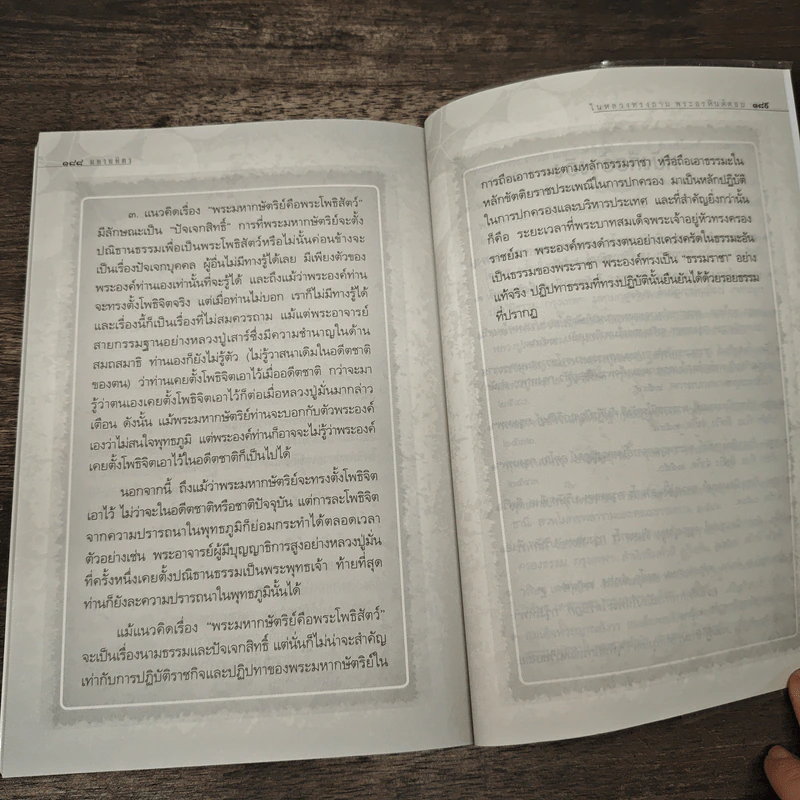 ๑๘๘
๓. แนวคิดเรื่อง "พระมหากษัตริย์คือพระโพธิสัตว์"
มีลักษณะเป็น "ปัจเจกสิทธิ์" การที่พระมหากษัตริย์จะตั้ง
ปณิธานธรรมเพื่อเป็นพระโพธิสัตว์หรือไม่นั้นค่อนข้างจะ
เป็นเรื่องปัจเจกบุคคล ผู้อื่นไม่มีทางรู้ได้เลย มีเพียงตัวของ
พระองค์ท่านเองเท่านั้นที่จะรู้ได้ และถึงแม้ว่าพระองค์ท่าน
จะทรงตั้งโพธิจิตจริง แต่เมื่อท่านไม่บอก เราก็ไม่มีทางรู้ได้
และเรื่องนี้ก็เป็นเรื่องที่ไม่สมควรถาม แม้แต่พระอาจารย์
สายกรรมฐานอย่างหลวงปู่เสาร์ซึ่งมีความชำนาญในด้าน
สมถสมาธิ ท่านเองก็ยังไม่รู้ตัว (ไม่รู้วาสนาเดิมในอดีตชาติ
ของตน) ว่าท่านเคยตั้งโพธิจิตเอาไว้เมื่ออดีตชาติ กว่าจะมา
รู้ว่าตนเองเคยตั้งโพธิจิตเอาไว้ก็ต่อเมื่อหลวงปู่มั่นมากล่าว
เตือน ดังนั้น แม้พระมหากษัตริย์ท่านจะบอกกับตัวพระองค์
เองว่าไม่สนใจพุทธภูมิ แต่พระองค์ท่านก็อาจจะไม่รู้ว่าพระองค์
เคยตั้งโพธิจิตเอาไว้ในอดีตชาติก็เป็นไปได้
นอกจากนี้ ถึงแม้ว่าพระมหากษัตริย์จะทรงตั้งโพธิจิต
เอาไว้ ไม่ว่าจะในอดีตชาติหรือชาติปัจจุบัน แต่การละโพธิจิต
จากความปรารถนาในพุทธภูมิก็ย่อมกระทำได้ตลอดเวลา
ตัวอย่างเช่น พระอาจารย์ผู้มีบุญญาธิการสูงอย่างหลวงปู่มั่น
ที่ครั้งหนึ่งเคยตั้งปณิธานธรรมเป็นพระพุทธเจ้า ท้ายที่สุด
ท่านก็ยังละความปรารถนาในพุทธภูมินั้นได้
แม้แนวคิดเรื่อง "พระมหากษัตริย์คือพระโพธิสัตว์"
จะเป็นเรื่องนามธรรมและปัจเจกสิทธิ์ แต่นั่นก็ไม่น่าจะสำคัญ
เท่ากับการปฏิบัติราชกิจและปฏิปทาของพระมหากษัตริย์ใน
ในหลวงทรงถาม พระอรหันต์ตอบ ๑๘๙
การถือเอาธรรมะตามหลักธรรมราชา หรือถือเอาธรรมะใน
หลักขัตติยราชประเพณีในการปกครอง มาเป็นหลักปฏิบัติ
ในการปกครองและบริหารประเทศ และที่สำคัญยิ่งกว่านั้น
ก็คือ ระยะเวลาที่พระบาทสมเด็จพระเจ้าอยู่หัวทรงครอง
ราชย์มา พระองค์ทรงดำรงตนอย่างเคร่งครัดในธรรมะอัน
เป็นธรรมของพระราชา พระองค์ทรงเป็น "ธรรมราชา" อย่าง
แท้จริง ปฏิปทาธรรมที่ทรงปฏิบัตินั้นยืนยันได้ด้วยรอยธรรม
ที่ปรากฏ